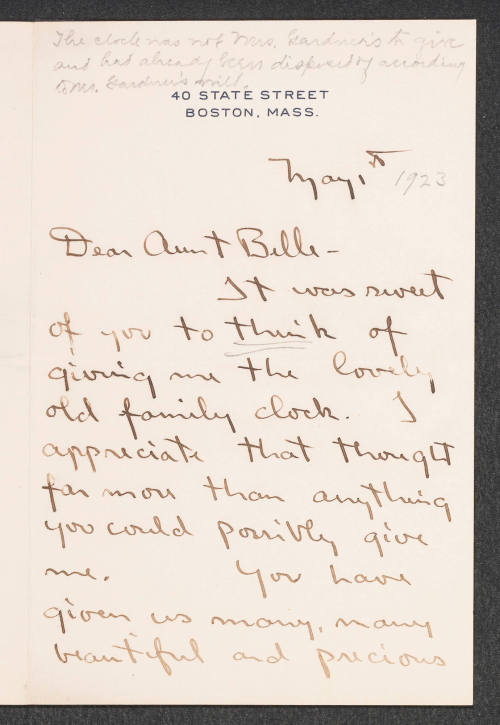 The clock was not Mrs. Gardner's to give
and had already been disposed of according
to Mr. Gardner's will.
40 STATE STREET
BOSTON, MASS.
May 1st 1923
Dear Aunt Belle-
It was sweet
of you to think of
giving me the lovely
old family clock. I
appreciate that thought
far more than anything
you could possibly give
me. You have
given us many, many
beautiful and precious